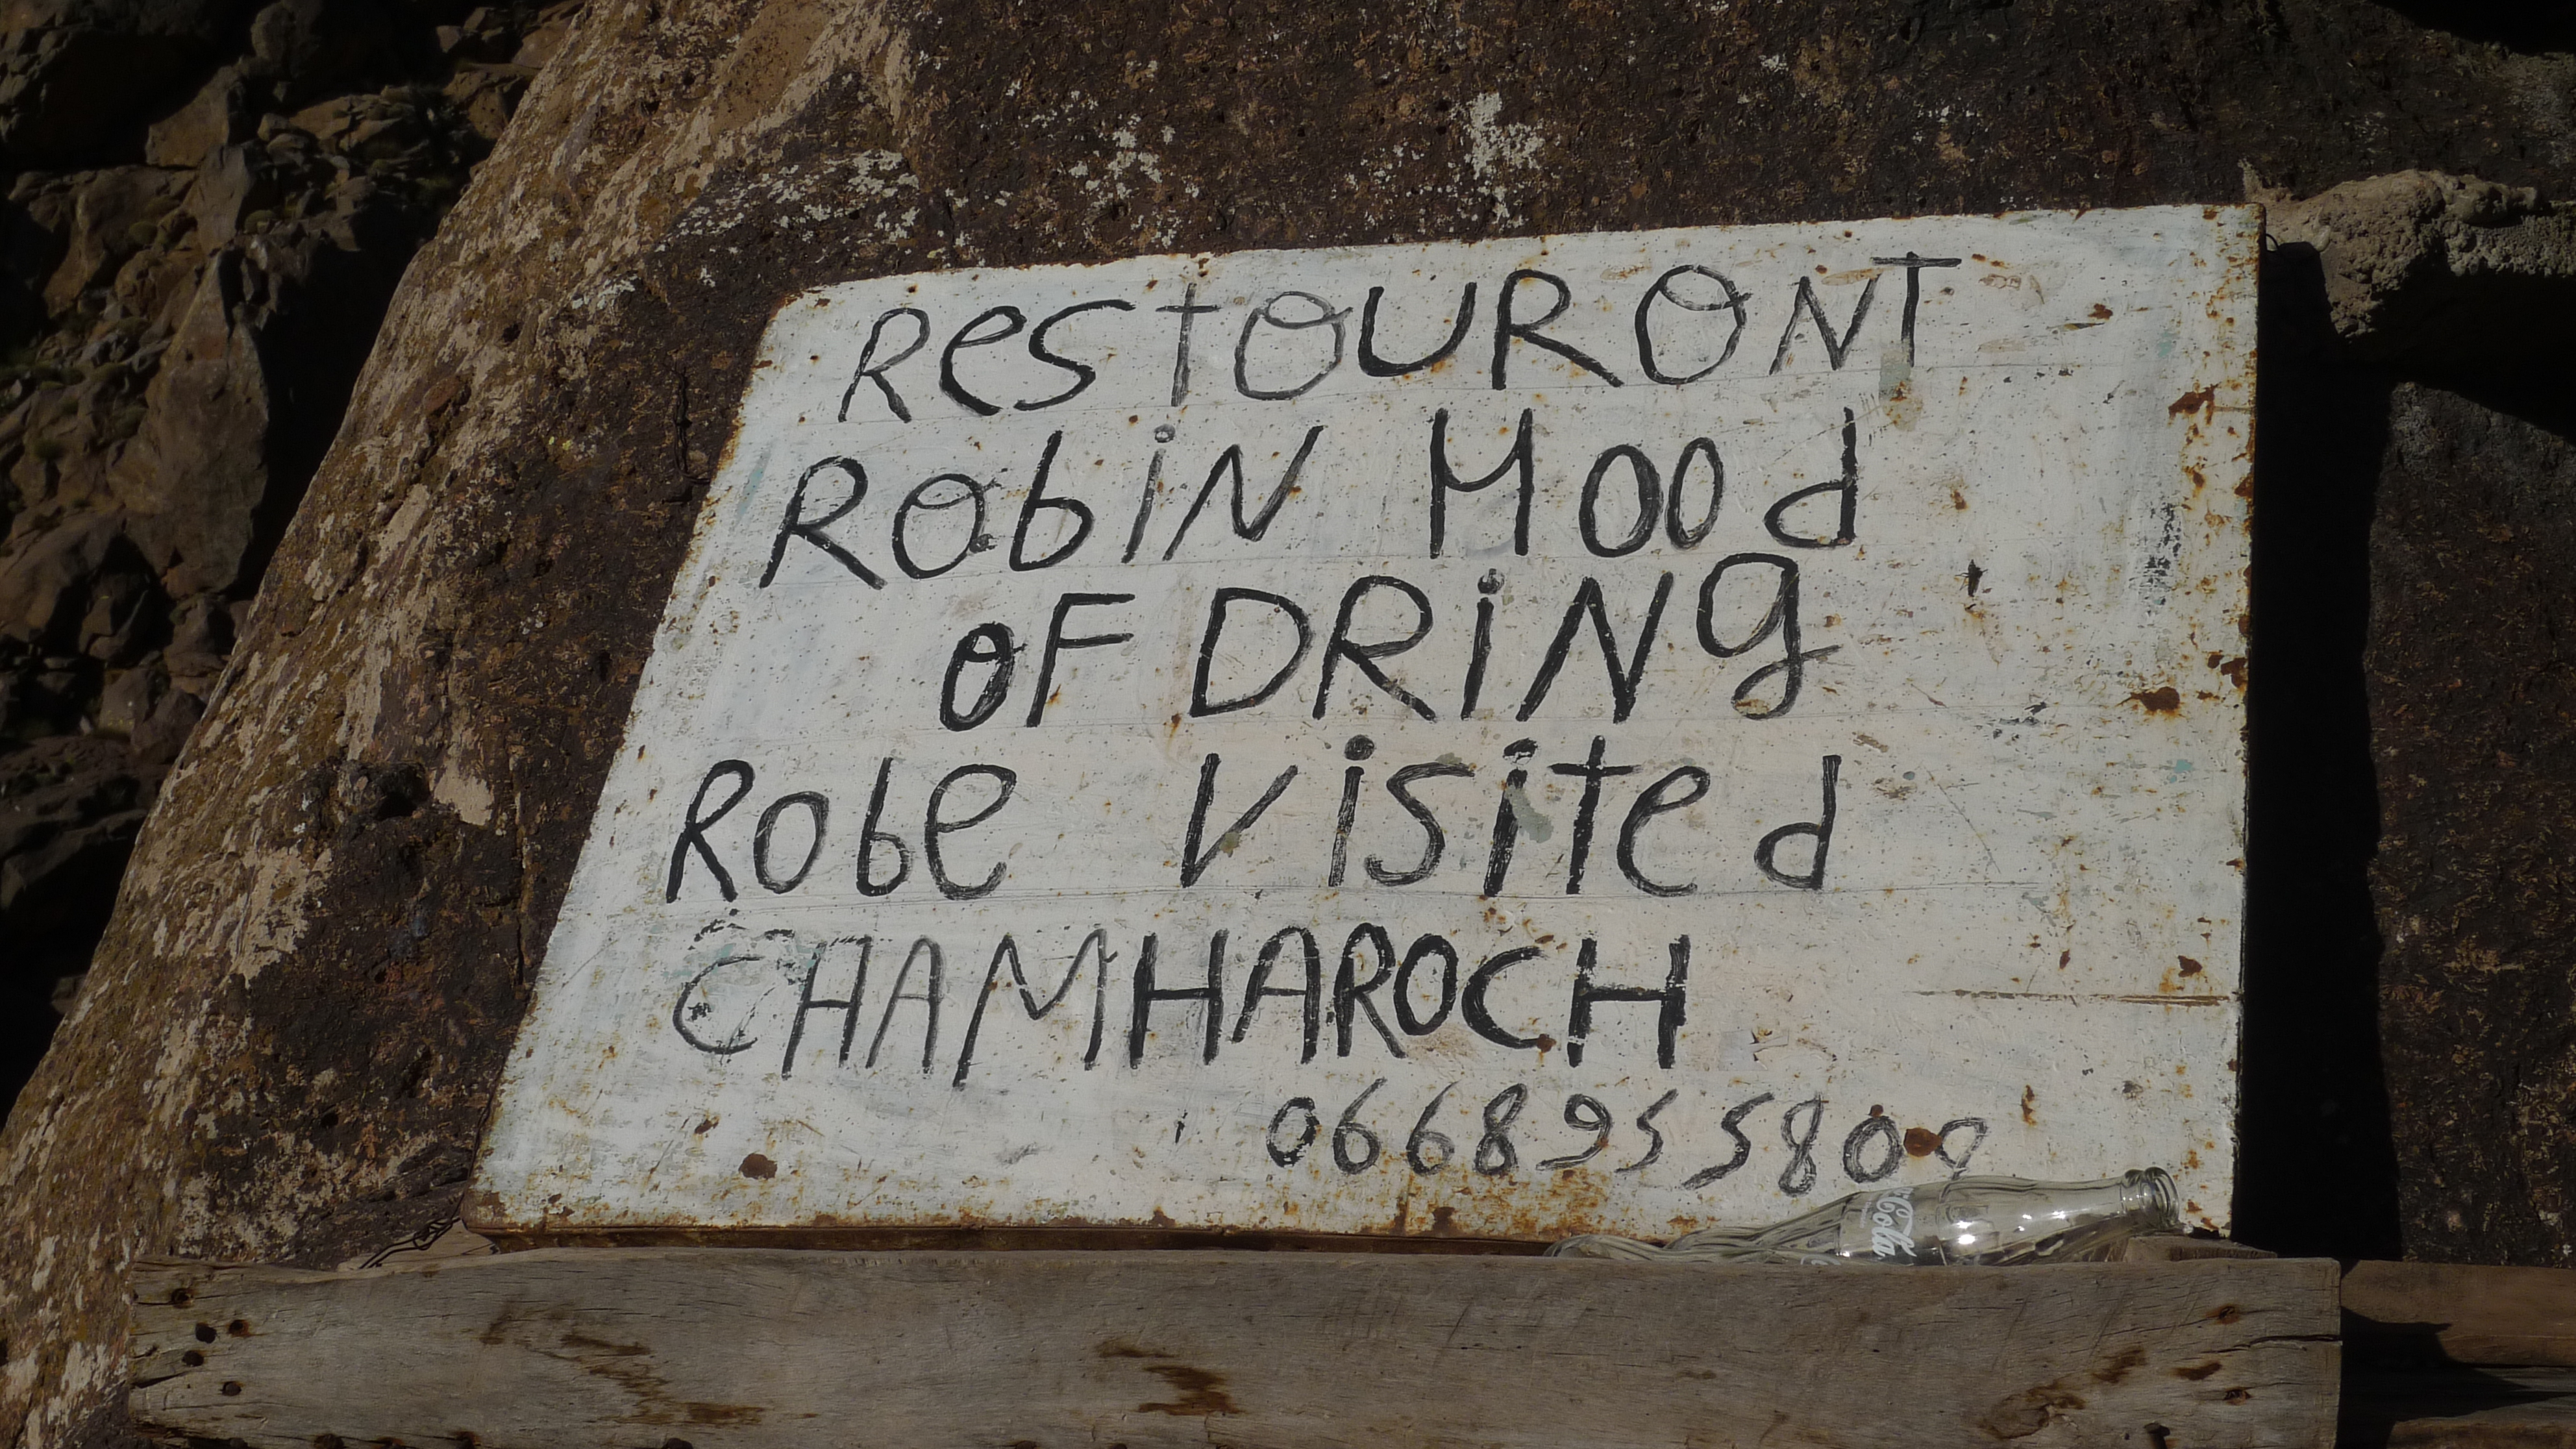 RestOURONT
RobiN Hood
OF DRiNg
Robe Visited
CHAMHAROCH
0668955809
Cola